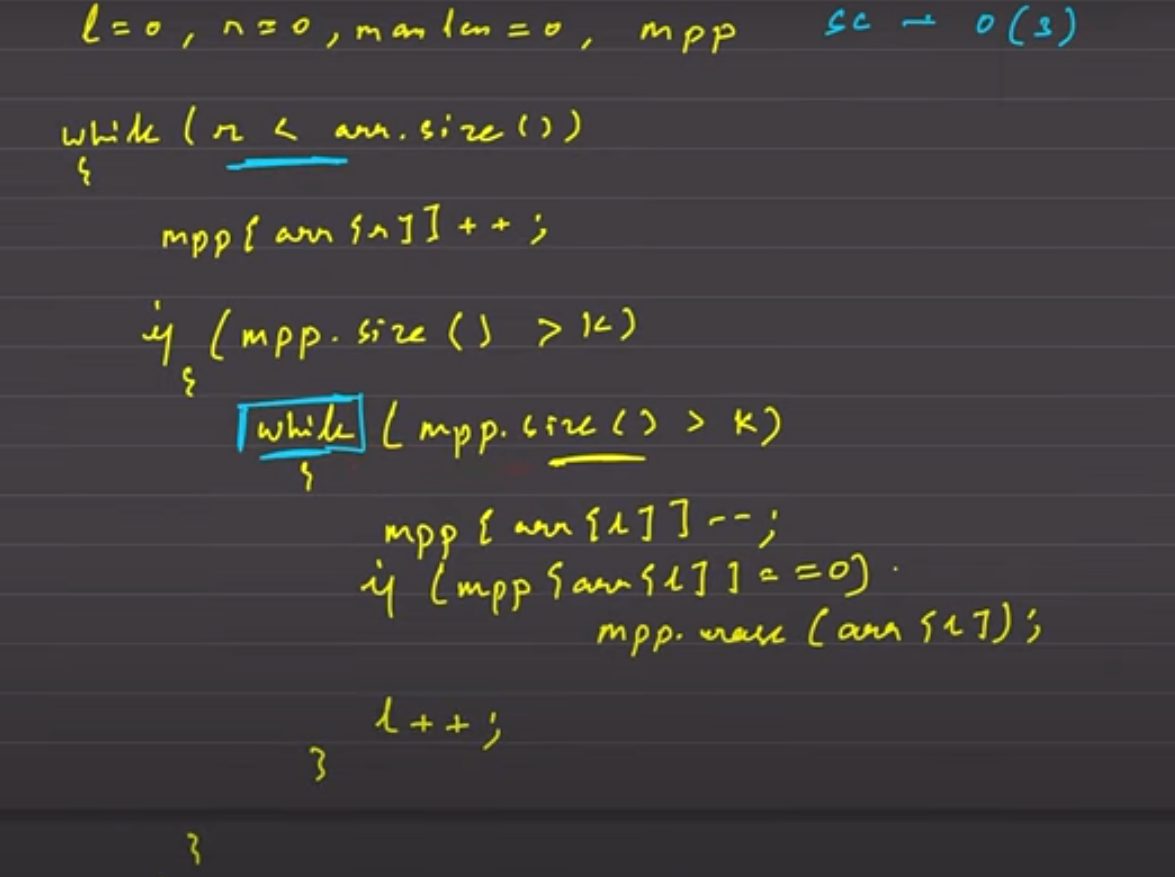 l = 0, r = 0, maxlen = 0, mpp SC → O(3)
while (r < arr.size())
{
mpp[arr[r]]++;
if (mpp.size() > k)
{
while (mpp.size() > k)
{
mpp[arr[l]]--;
if (mpp[arr[l]] == 0)
mpp.erase(arr[l]);
l++;
}
}